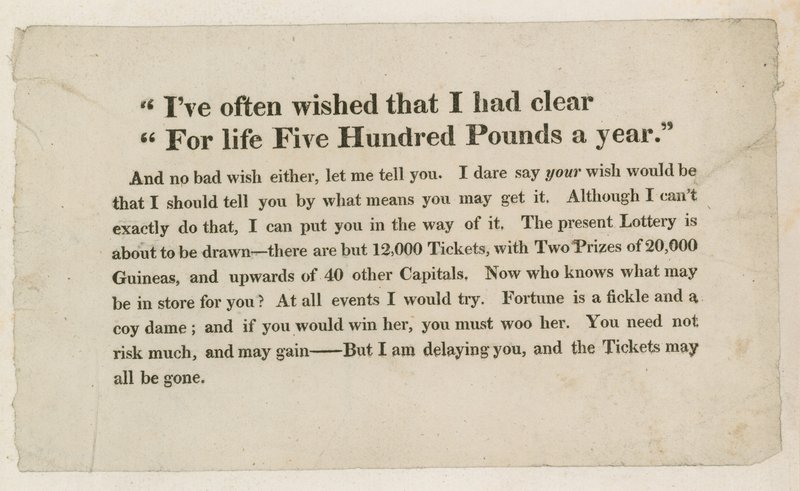 “ I’ve often wished that I had clear
“ For life Five Hundred Pounds a year.”
And no bad wish either, let me tell you. I dare say your wish would be
that I should tell you by what means you may get it. Although I can’t
exactly do that, I can put you in the way of it. The present Lottery is
about to be drawn—there are but 12,000 Tickets, with Two Prizes of 20,000
Guineas, and upwards of 40 other Capitals. Now who knows what may
be in store for you? At all events I would try. Fortune is a fickle and a
coy dame; and if you would win her, you must woo her. You need not
risk much, and may gain——But I am delaying you, and the Tickets may
all be gone.